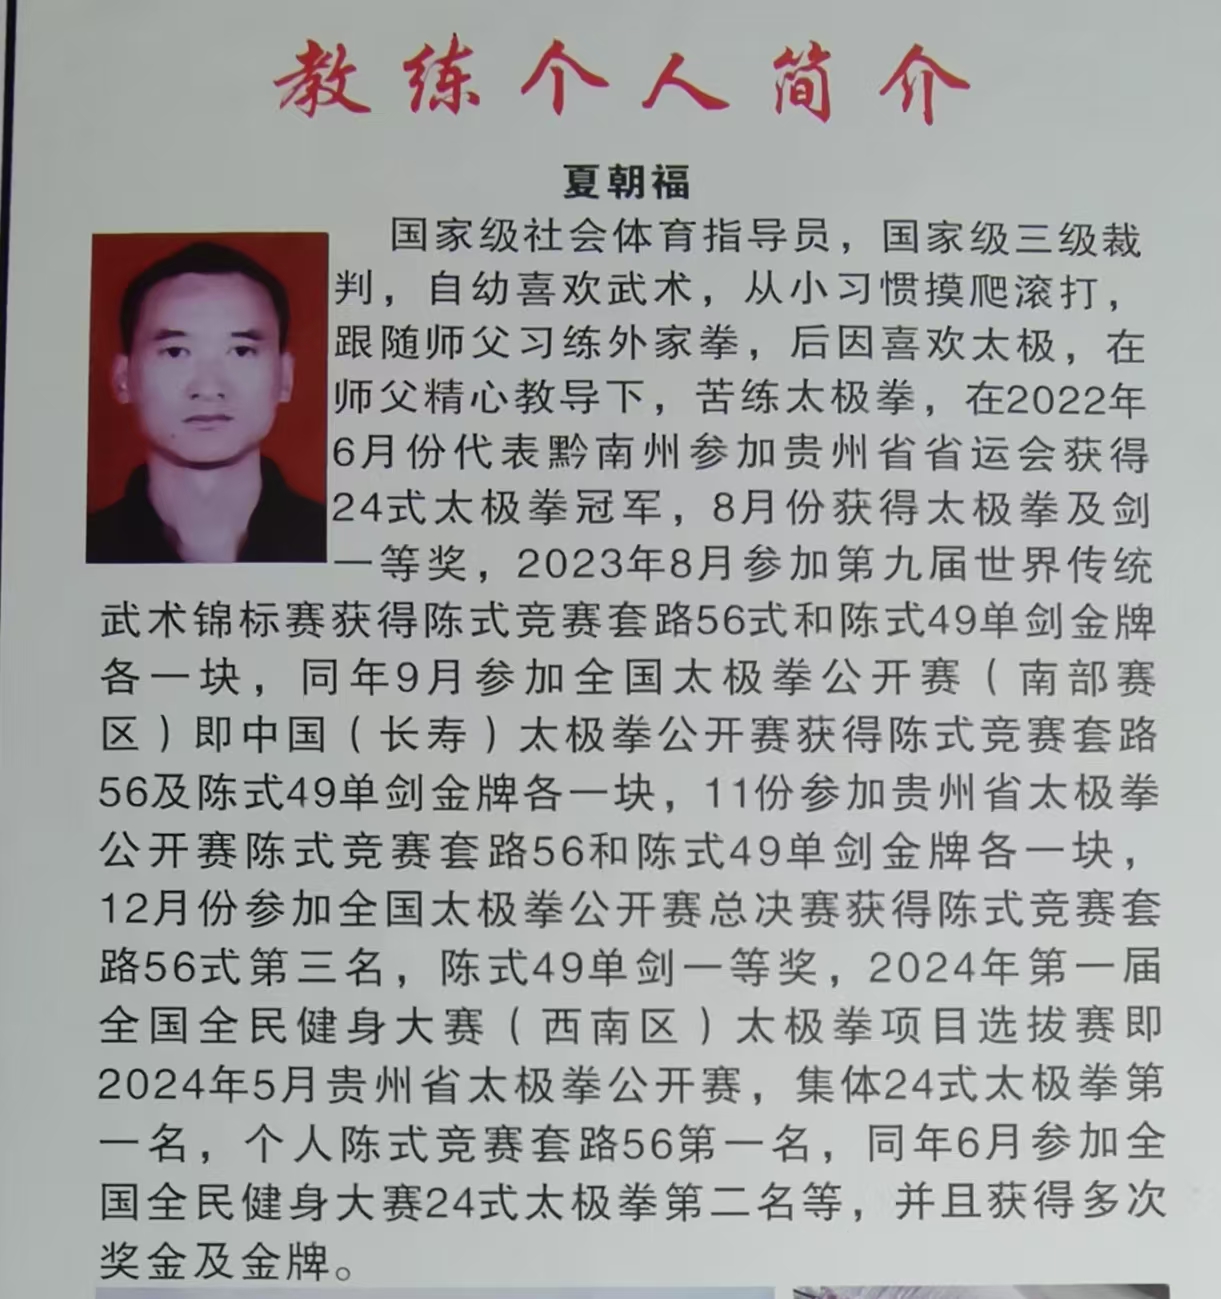 教练个人简介
夏朝福
国家级社会体育指导员，国家级三级裁
判，自幼喜欢武术，从小习惯摸爬滚打，
跟随师父习练外家拳，后因喜欢太极，在
师父精心教导下，苦练太极拳，在2022年
6月份代表黔南州参加贵州省省运会获得
24式太极拳冠军，8月份获得太极拳及剑
一等奖，2023年8月参加第九届世界传统
武术锦标赛获得陈式竞赛套路56式和陈式49单剑金牌
各一块，同年9月参加全国太极拳公开赛（南部赛
区）即中国（长寿）太极拳公开赛获得陈式竞赛套路
56及陈式49单剑金牌各一块，11份参加贵州省太极拳
公开赛陈式竞赛套路56和陈式49单剑金牌各一块，
12月份参加全国太极拳公开赛总决赛获得陈式竞赛套
路56式第三名，陈式49单剑一等奖，2024年第一届
全国全民健身大赛（西南区）太极拳项目选拔赛即
2024年5月贵州省太极拳公开赛，集体24式太极拳第
一名，个人陈式竞赛套路56第一名，同年6月参加全
国全民健身大赛24式太极拳第二名等，并且获得多次
奖金及金牌。